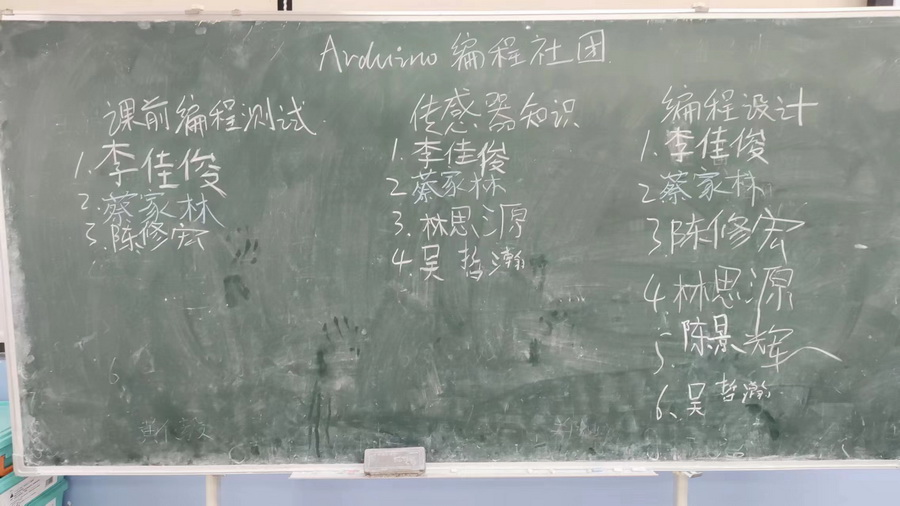 Arduino编程社团
课前编程测试
1.李佳俊
2.蔡家林
3.陈修宏
传感器知识
1.李佳俊
2蔡家林
3.林思源
4.吴哲瀚
编程设计
1.李佳俊
2蔡家林
3.陈修宏
4林思源
5.陈景辉
6、吴哲瀚